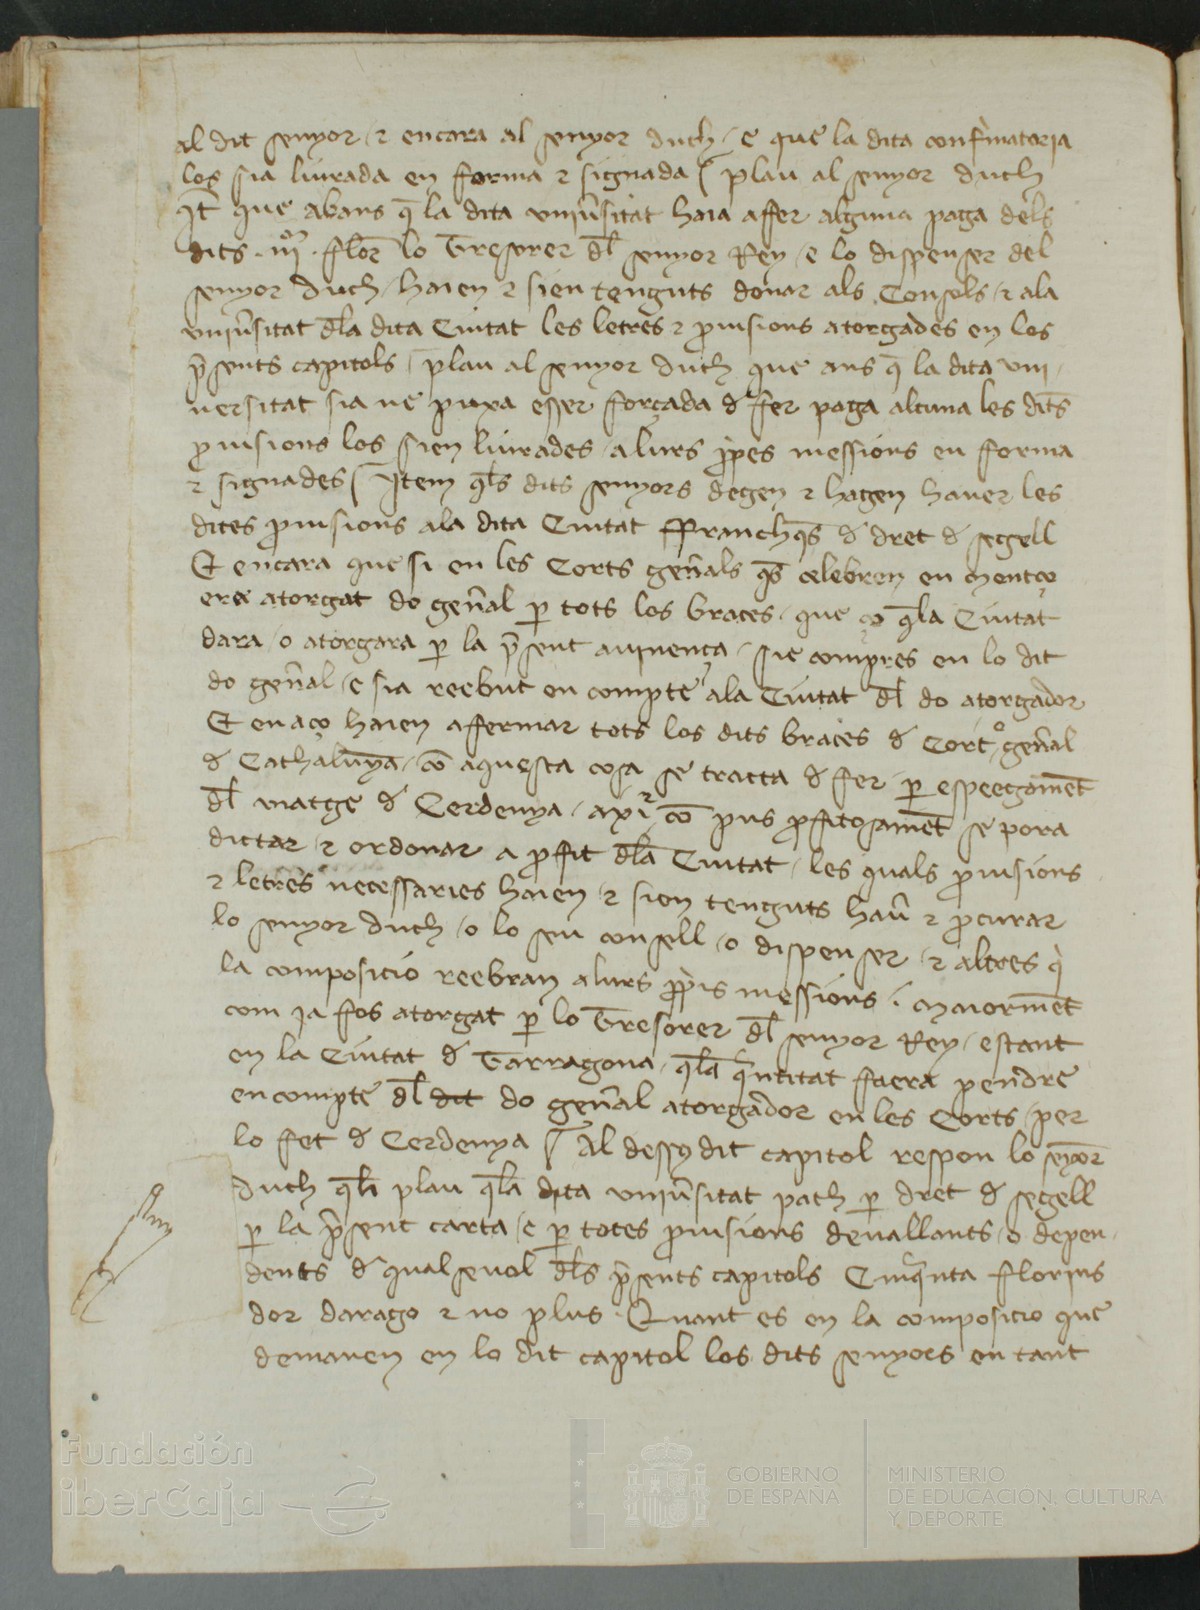 al dit senyor / ⁊ encara al senyor duch / e que la dita confirmatoria
los sia liurada en forma ⁊ signada / plau al senyor duch
Itē que abans q̄ la dita uniūsitat haia affer alguna paga dels
dits . florˉ lo Tresorer dl̄ senyor Rey / e lo dispenser del
senyor duch / haien ⁊ sien tenguts donar als Consols / ⁊ ala
uniūsitat dl̄a dita Ciutat les letres ⁊ ꝓuisions atorgades en los
p̄sents capitols / plau al senyor duch que ans q̄ la dita uni
uersitat sia ne puxa esser forçada d̄ fer paga alcuna les dits
ꝓuisions los sien liurades / a lurs ꝓpes messions en forma
⁊ signades / Item ql̄s dits senyors degen ⁊ hagen hauer les
dites ꝓuisions ala dita Ciutat ffranchq̄s d̄ dret d̄ segell
Et encara que si en les Corts geñals qs̄ celebren en Montço
era atorgat do geñal ꝑ tots los braces / que ço ql̄a Ciutat
dara / o atorgara ꝑ la p̄sent auinença / sie compres en lo dit
do geñal / e sia reebut en compte ala Ciutat dl̄ do atorgador
Et en aço haien affermar tots los dits braces d̄ Cort geñal
d̄ Cathalunya / cō aquesta cosa se tracta d̄ fer / ꝑ espeegamēt
dl̄ viatge d̄ Cerdenya / axi cō pus ꝓfitosamēt se pora
dictar / ⁊ ordonar a ꝓfit dl̄a Ciutat / les quals ꝓuisions
⁊ letres necessaries haien / ⁊ sien tenguts haū ⁊ ꝓcurar
lo senyor duch / o lo seu consell / o dispenser / ⁊ altres q̇
la composicio reebran a lurs ꝓpis messions / Maiormēt
com ja fos atorgat ꝑ lo Tresorer dl̄ senyor Rey / estant
en la Ciutat d̄ Tarragona / ql̄a quantitat fuera pendre
en compte dl̄ dit do geñal atorgador en les Corts / per
lo fet d̄ Cerdenya / Al dessꝯ dit capitol respon lo senyor
duch ql̄i plau ql̄a dita uniūsitat pach ꝑ dret d̄ segell
ꝑ la p̄sent carta / e ꝑ totes ꝓuisions deuallants / o depen
dents d̄ qualseuol dl̄s p̄sents capitols Cinquanta florins
dor darago ⁊ no plus . Quant es en la composicio que
demanen en lo dit capitol los dits senyors en tant
Fundación
iberCaja
GOBIERNO
DE ESPAÑA
MINISTERIO
DE EDUCACIÓN, CULTURA
Y DEPORTE